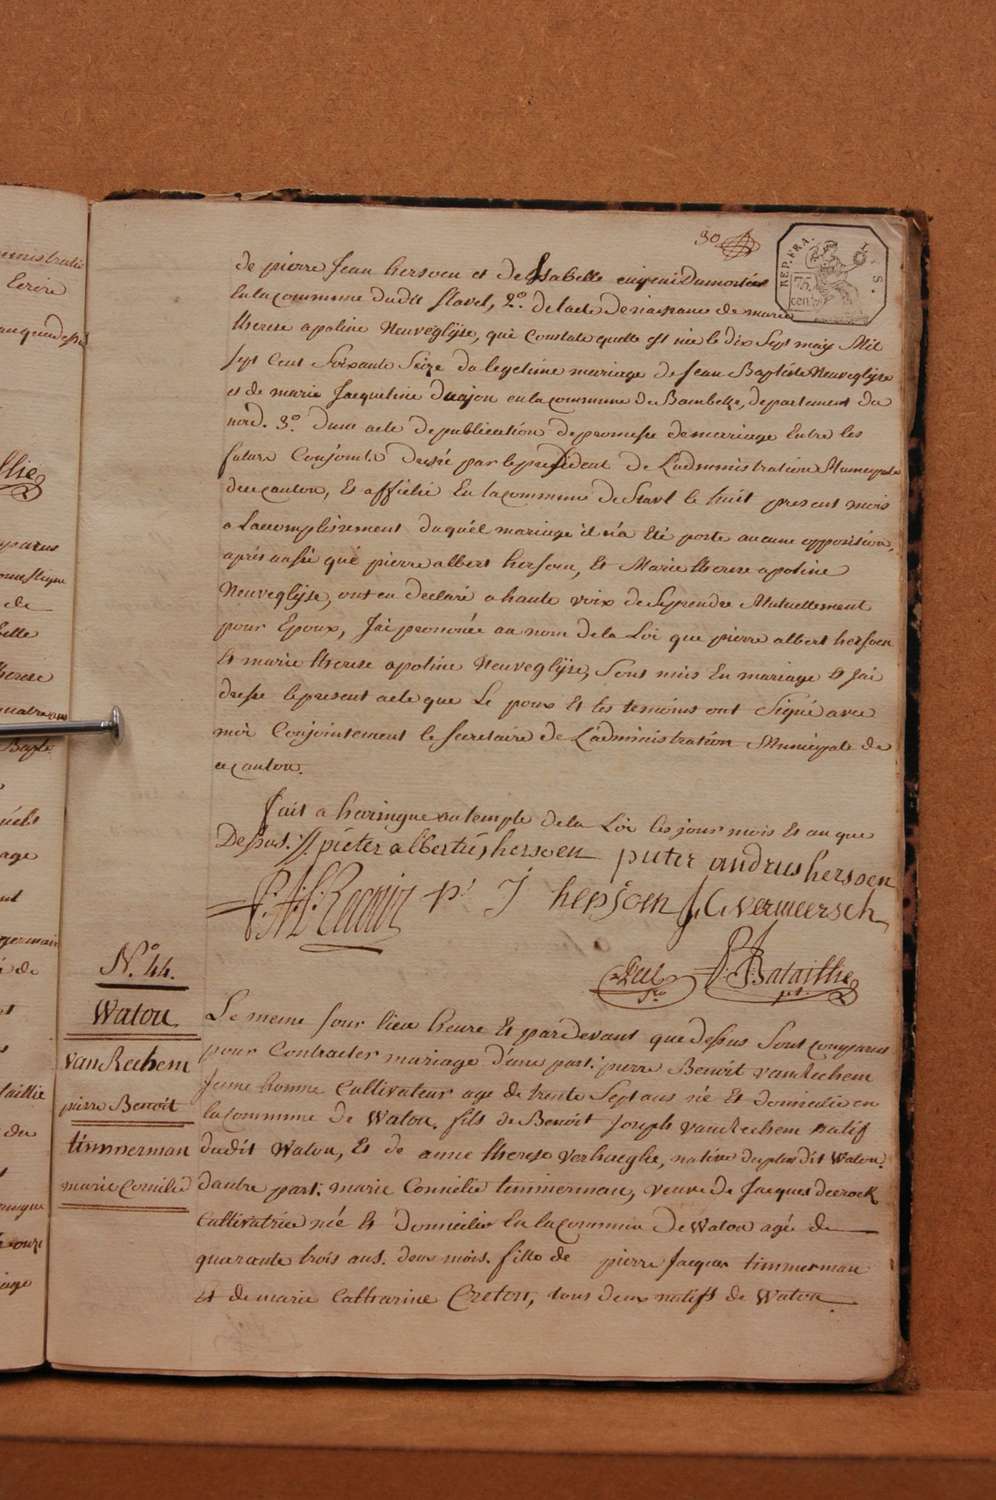 30
REP. FRA.
75
CENT
L. S.
de pierre Jean hersoen et de Isabelle eugeni Dumortier
En la commune du dit Stavel, 2°. de l'acte de naissance de marie
therese apoline Neuveglijse, qui Constate quelle est née le dix Sept may Mil
sept Cent Soixante Seize du legetime mariage de Jean Baptiste Neuveglijse
et de marie Jacqueline Dujon en la commune de Bambeke, departement du
nord. 3°. d'une acte de publication de promesse de mariage Entre les
future Conjoints dressé par le president de L'administration Municipale
du canton, Et affichée En la commune de Stavl le huit present mois
a Laccomplissement duquél mariage il n'a Eté porte aucune opposition,
aprés aussi que pierre albert hersoen, Et Marie therese apoline
Neuveglijse, ont eu declaré a haute voix de Seprendre Mutuellement
pour Epoux, J'ai prononcée au nom de la Loi que pierre albert hersoen
Et marie therese apoline Neuveglijse, Sont unis En mariage Et J'ai
dresse le present acte que Le poux Et les temoins ont Signé avec
moi Conjointement le Secretaire de L'administration Municipale de
ce canton.
Fait a haringue au temple de la Loi les jour mois Et an que
Dessus. // pieter albertus hersoen pieter andries hersoen
P: J hersoen J, C vermeersch
P. J. Bataillie
N.° 44.
Watou
vanRechem
pierre Benoit
timmerman
marie Cornélie
Le meme Jour lieu heure Et pardevant que dessus Sont comparus
pour Contracter mariage d'une part: pierre Benoit vanRechem
Jeune homme Cultivateur age de trente Sept ans né Et domicilié en
la commune de Watou, fils de Benoit Joseph vanRechem natif
dudit Watou, Et de anne therese Verhaeghe, native du plus dit Watou.
d'autre part. marie Connelie timmerman, veuve de Jacques decrock
Cultivatrice née Et domicilie En la commune de Watou agé de
quarante trois ans. deux mois. fille de pierre Jacques timmerman
Et de marie Catharine Creton, tous deux natifs de Watou